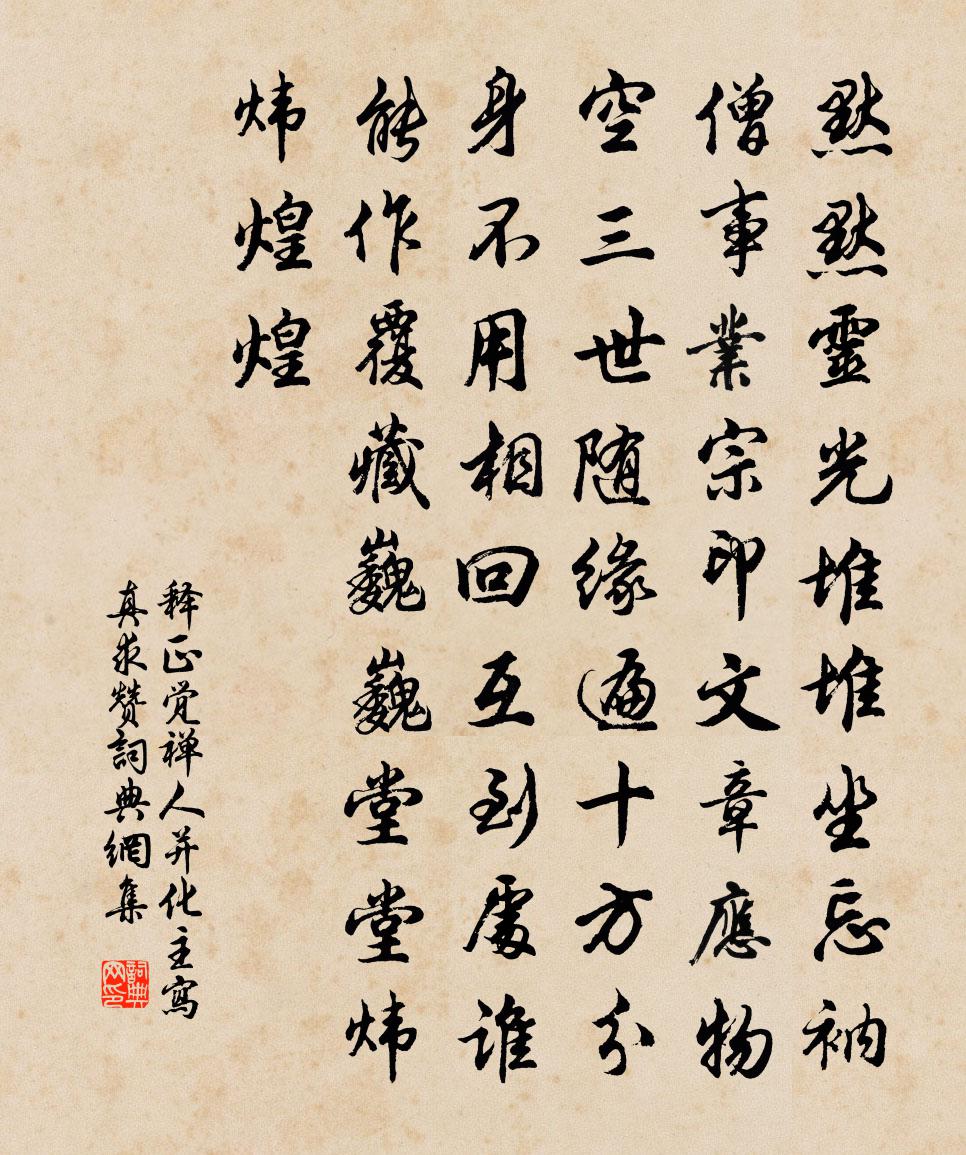 默默靈光堆堆坐忘衲
僧事業宗印文章應物
空三世随緣遍十方分
身不用相回互到處誰
能作覆藏巍巍堂堂炜
炜煌煌
释正觉禅人并化主寫
真求赞詞典網集
詞典网印